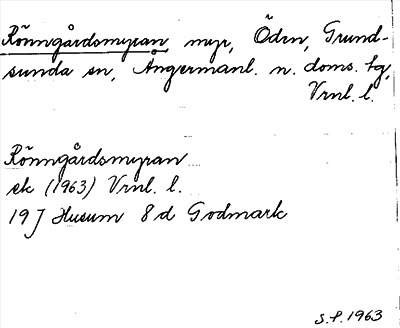 Rönngårdsmyran myr, Ödrn, Grund-
sunda sn, Ångermanl. n. doms. tg,
Vrnl. l.
Rönngårdsmyran
ek (1963) Vrnl. l.
19 J Husum 8 d Godmark
S.P. 1963